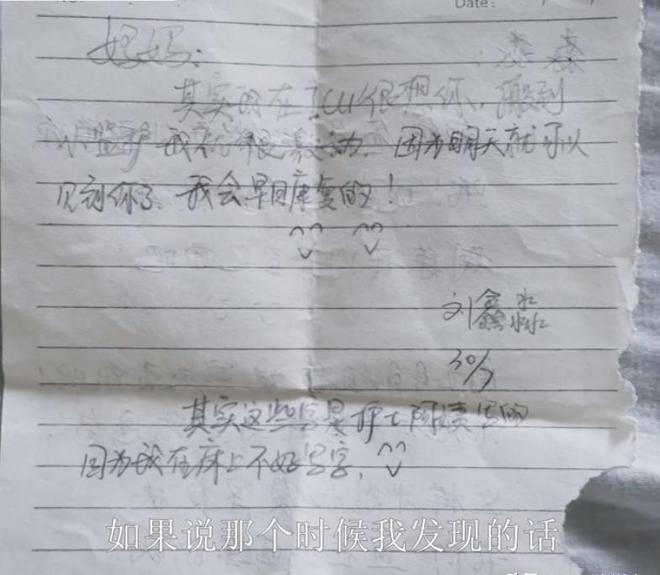 Date:
妈妈:
其实我在ICU很想你,搬到
小监护我就很激动,因为明天就可以
见到你了,我会早日康复的!
刘鑫淼
30/7
其实这些字是护士阿姨写的
因为我在床上不好写字,
如果说那个时候我发现的话